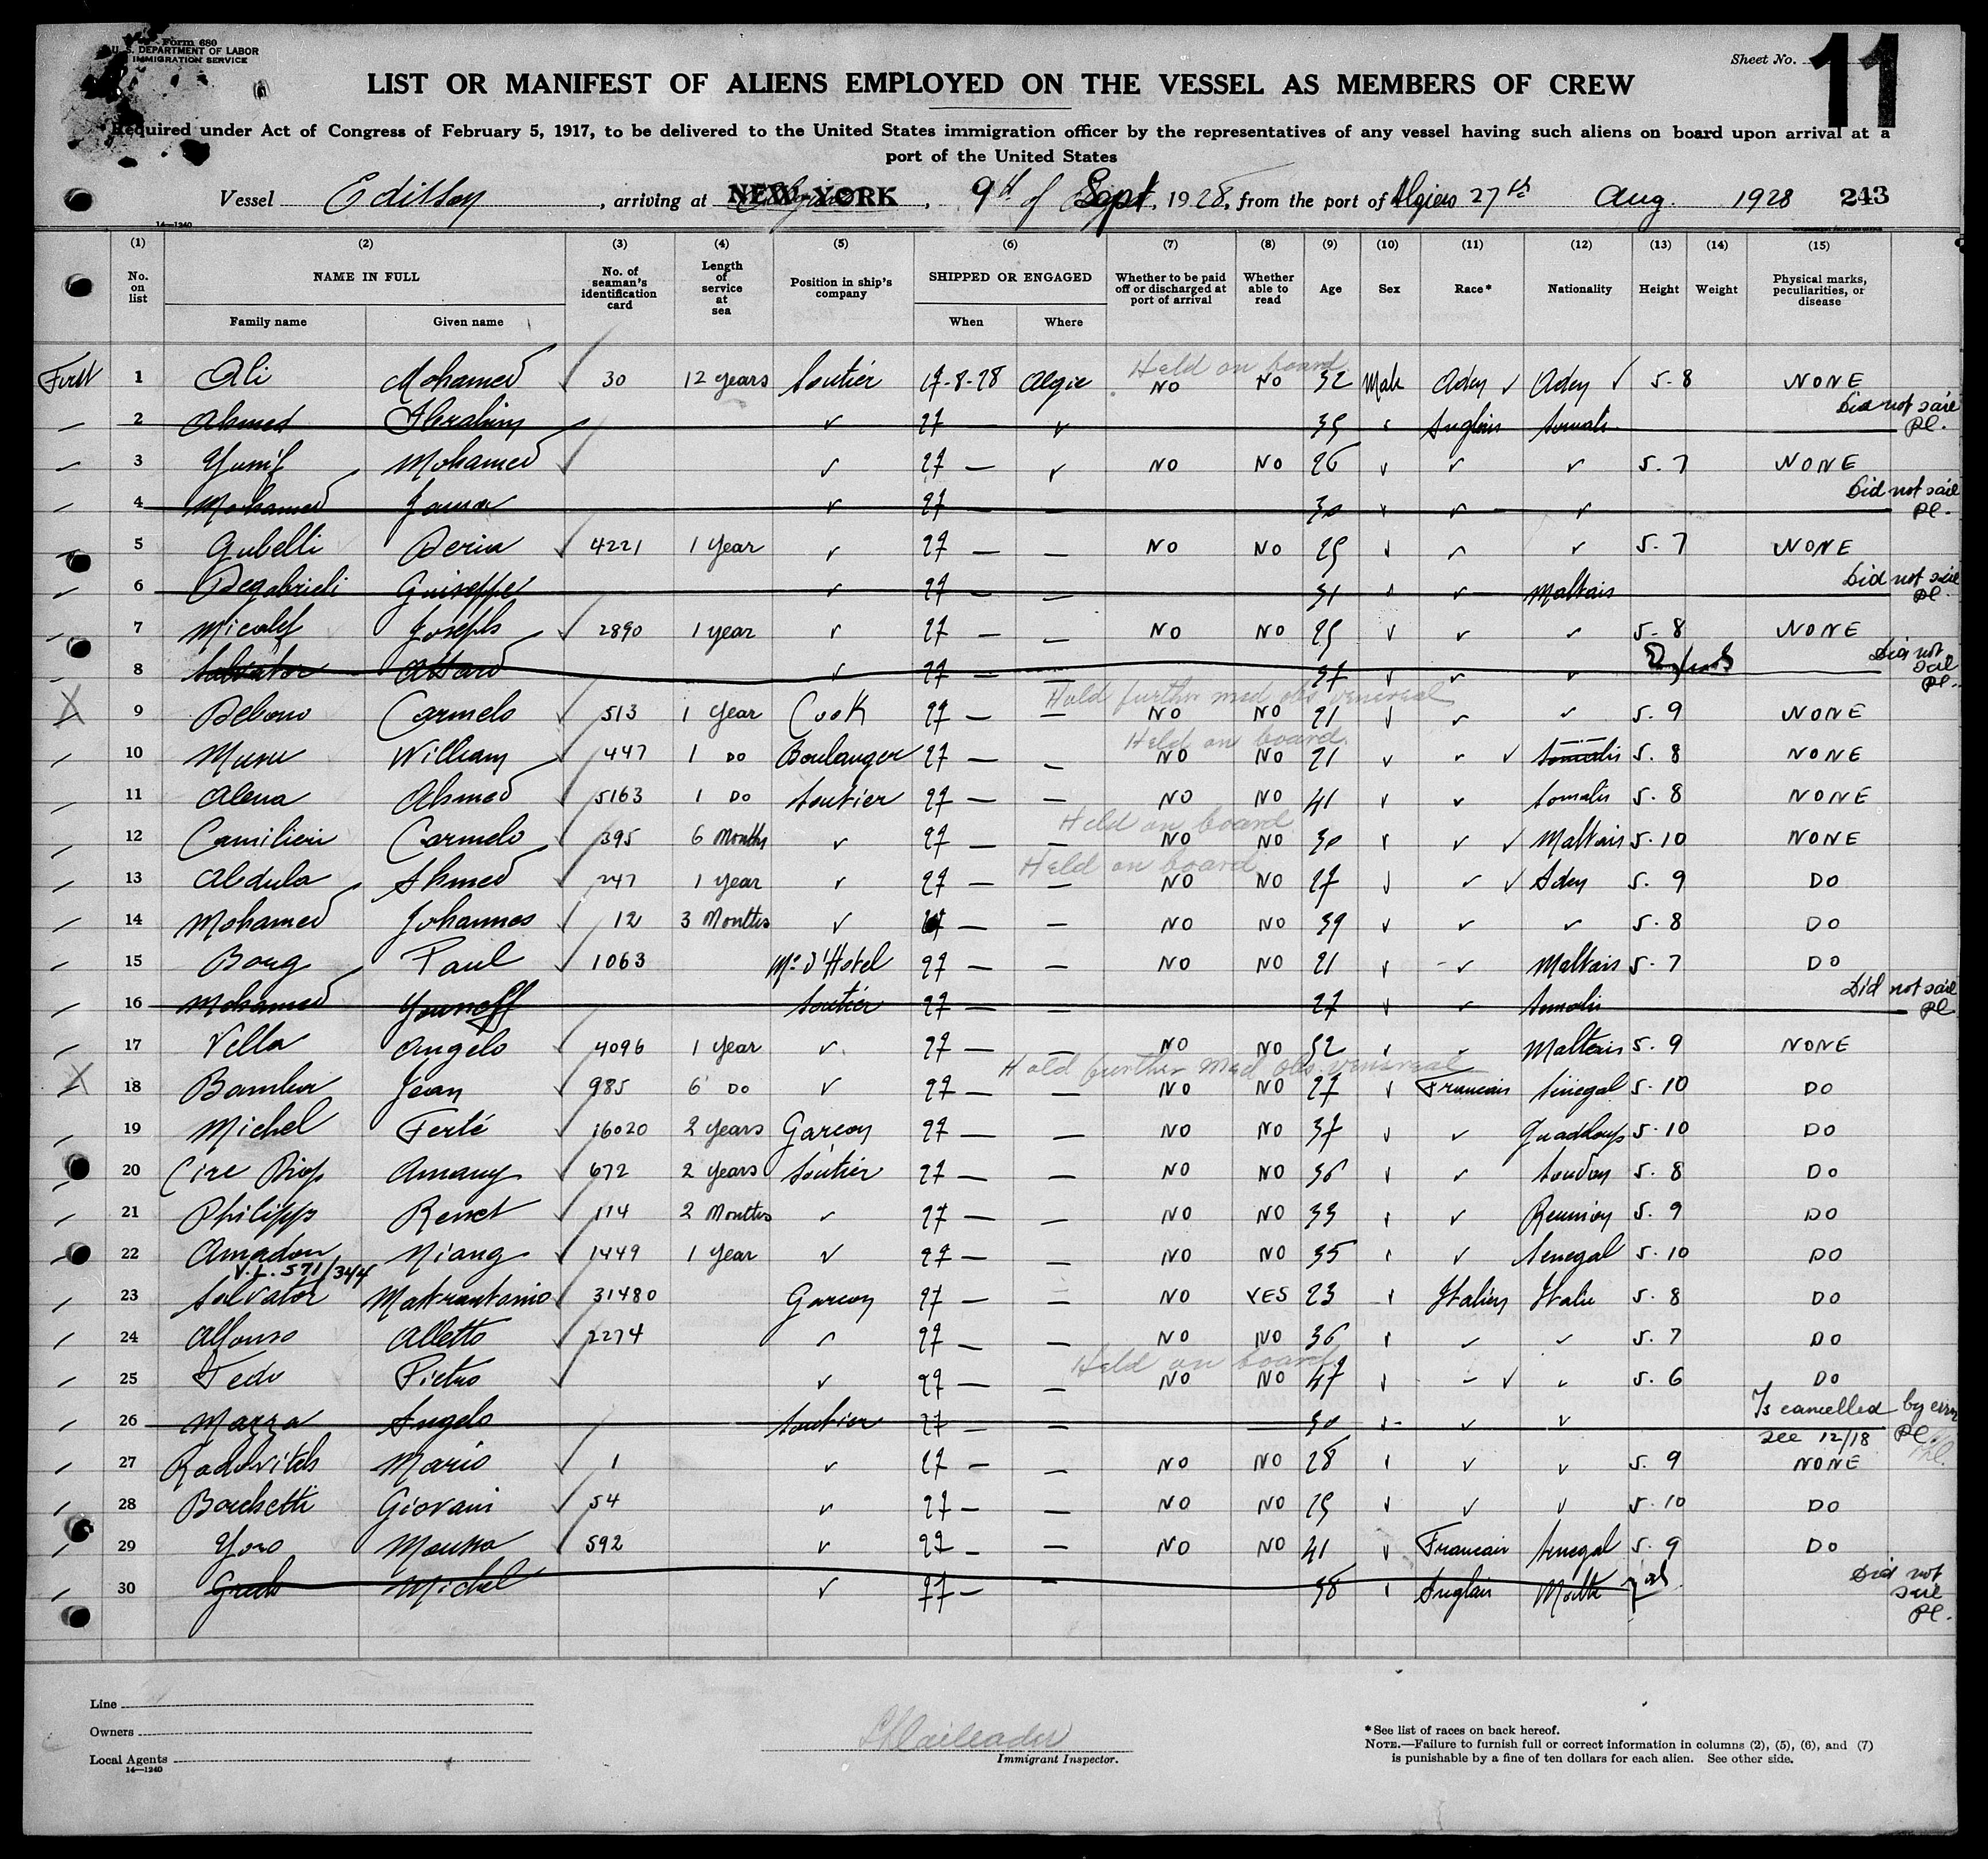 Form 680
U. S. DEPARTMENT OF LABOR
IMMIGRATION SERVICE
Sheet No. 11
LIST OR MANIFEST OF ALIENS EMPLOYED ON THE VESSEL AS MEMBERS OF CREW
Required under Act of Congress of February 5, 1917, to be delivered to the United States immigration officer by the representatives of any vessel having such aliens on board upon arrival at a
port of the United States
Vessel Edison, arriving at NEW YORK, 9th of Sept, 1928, from the port of Algiers 27th Aug. 1928 243
14—1240
(1) (2) (3) (4) (5) (6) (7) (8) (9) (10) (11) (12) (13) (14) (15)
No. on list NAME IN FULL Family name Given name No. of seaman's identification card Length of service at sea Position in ship's company SHIPPED OR ENGAGED When Where Whether to be paid off or discharged at port of arrival Whether able to read Age Sex Race* Nationality Height Weight Physical marks, peculiarities, or disease
Held on board
First 1 Ali Mohamed 30 12 years Soutier 27-8-28 Algie NO NO 32 Male Aden Aden 5-8 NONE
2 Ahmed Ibrahim 27 — 35 Anglais Somali Did not sail Pl.
3 Yusif Mohamed 27 — NO NO 26 5.7 NONE
4 Mohamed Jama 27 — — 30 Did not sail Pl.
5 Gubelli Deria 4221 1 year 27 — — NO NO 25 5.7 NONE
6 Degabrieli Guiseppe 27 — — 31 Maltais Did not sail Pl.
7 Micalef Joseph 2890 1 year 27 — — NO NO 25 5-8 NONE
8 Salvator Attard 27 — — 37 Did not sail Pl.
Hold further med obs venereal
9 Debono Carmelo 513 1 year Cook 27 — — NO NO 21 5.9 NONE
Held on board
10 William 447 1 DO Boulanger 27 — — NO NO 21 Somalis 5.8 NONE
11 Alena Ahmed 5163 1 DO Soutier 27 — — NO NO 41 Somalis 5.8 NONE
Held on board
12 Camilieri Carmelo 395 6 Months 27 — — NO NO 30 Maltais 5.10 NONE
Held on board
13 Abdula Ahmed 247 1 year 27 — — NO NO 27 Aden 5.9 DO
14 Mohamed Johannes 12 3 Months 27 — — NO NO 39 5.8 DO
15 Borg Paul 1063 Me d'Hotel 27 — — NO NO 21 Maltais 5.7 DO
16 Mohamed Yousoff Soutier 27 — — 27 Somalis Did not sail Pl
17 Vella Angelo 4096 1 year 27 — — NO NO 32 Maltais 5.9 NONE
Hold further Med obs. venereal
18 Jean 985 6 DO 27 — — NO NO 27 Francais Sénégal 5.10 DO
19 Michel Ferté 16020 2 years Garcon 27 — — NO NO 37 Guadeloupe 5.10 DO
20 Cire Diop Amany 672 2 years Soutier 27 — — NO NO 36 Soudan 5.8 DO
21 Philipps Renet 114 2 Months 27 — — NO NO 33 Reunion 5.9 DO
22 Amadou Niang 1449 1 year 27 — — NO NO 35 Senegal 5.10 DO
V.L. 571/344
23 Salvator Mastrantonio 31480 Garcon 27 — — NO YES 23 Italien Italie 5.8 DO
24 Alfonso Alletto 2274 27 — — NO NO 36 5.7 DO
Held on board
25 Tedo Pietro 27 — — NO NO 47 5.6 DO
26 Mazza Angelo Soutier 27 — — 30 Is cancelled by error see 12/18 Pl.
27 Radovitch Mario 1 27 — — NO NO 28 5.9 NONE
28 Bochetti Giovani 54 27 — — NO NO 25 5.10 DO
29 Yoro Moussa 592 27 — — NO NO 41 Francais Senegal 5.9 DO
30 Grech Michel 27 — — 38 Anglais Malte Did not sail Pl.
Line
Owners
Local Agents
14—1240
Immigrant Inspector.
*See list of races on back hereof.
NOTE.—Failure to furnish full or correct information in columns (2), (5), (6), and (7)
is punishable by a fine of ten dollars for each alien. See other side.